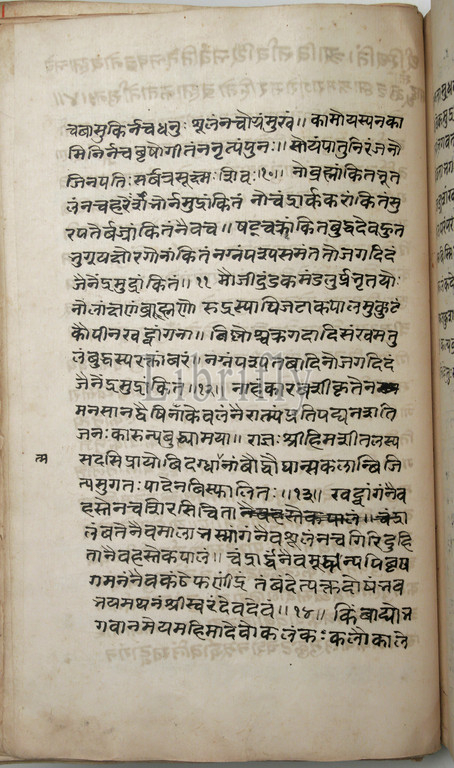 चबासुकिर्नचधनुः शूलंनचोग्रंमुखं॥ कामोयस्यनका
मिनिर्नचवृषोगीतंननृत्यंपुनः॥ सोयंपातुनिरंजनो
जिनपतिः सर्वत्रसूक्ष्मः शिवः॥१०॥ नोब्रह्मांकितभूत
लंनचहरेर्शंभोर्नमुद्रांकितं नोचंद्रार्ककरांकितंसु
रपतेर्बज्रांकितंनैवच॥ षट्वक्त्रांकितबुद्धदेवहुत
भुग्यक्षोरगोनांकितंनग्नंपश्यसमंततोजगदिदं
जैनेंद्रमुद्रांकितं॥११ मौजीदुंडकमंडलुर्प्रभृतयोः
नोलांछनंब्राह्मणो रुद्रस्यापिजटाकपालमुकुटं
कौपीनखट्वांगना॥ बिस्मोश्चक्रगदादिसंखमतु
लंबुद्धस्यरक्तांबरं॥ नग्नंपश्यतबादिनोजगदिदं
जैनेंद्रमुद्रांकितं॥१२॥ नाहंकारवशीकृतेन
मनसानद्वेषिनांकेवलंनैरात्म्यंप्रतिपद्यनश्यति
जनःकारुन्यबुद्ध्यामया॥ राज्ञः श्रीहिमशीतलस्य
त्म सदसिप्रायोबिदग्धानांबौद्धौघान्सकलान्बिजि
त्यसुगतः पादेनबिस्फालितः॥१३॥ खट्वांगंनैव
हस्तेनचशिरसिचिता
लंबतेनैवमालाभस्मांगंनैवशूलंनचगिरिदुहि
तानैवहस्तेकपालं॥ चंद्रार्द्धंनैवमूर्द्धन्यपिबृष
गमनंनैवकंठेफणींद्रं तंबंदेत्यक्तदोषंभव
भयमथनंश्रीस्वरंदेवदेवं॥१४॥ किंबाद्योभ
गवानमेयमहिमादेवोकलंकः कलौकाले
Librifly